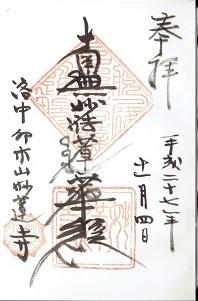 奉拝
平成二十七年
十一月四日
南無妙法蓮華経
洛中卯木山妙蓮寺